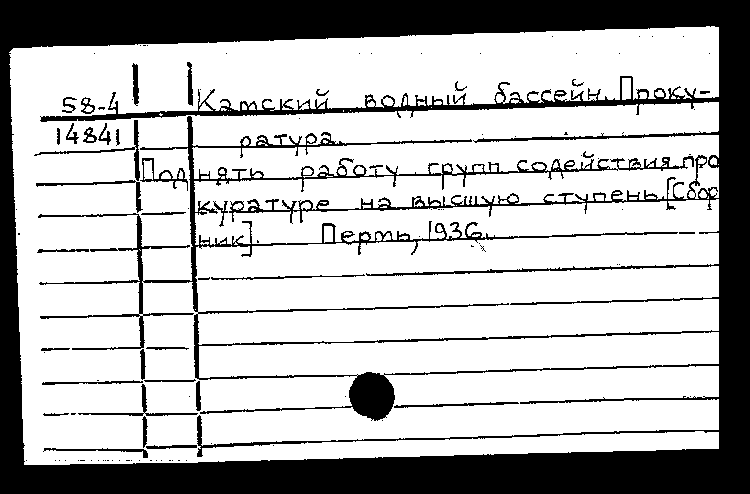 58-4 Камский водный бассейн. Проку-
14841 ратура.
Поднять работу групп содействия про
куратуре на высшую ступень. [Сбор
ник]. Пермь, 1936.